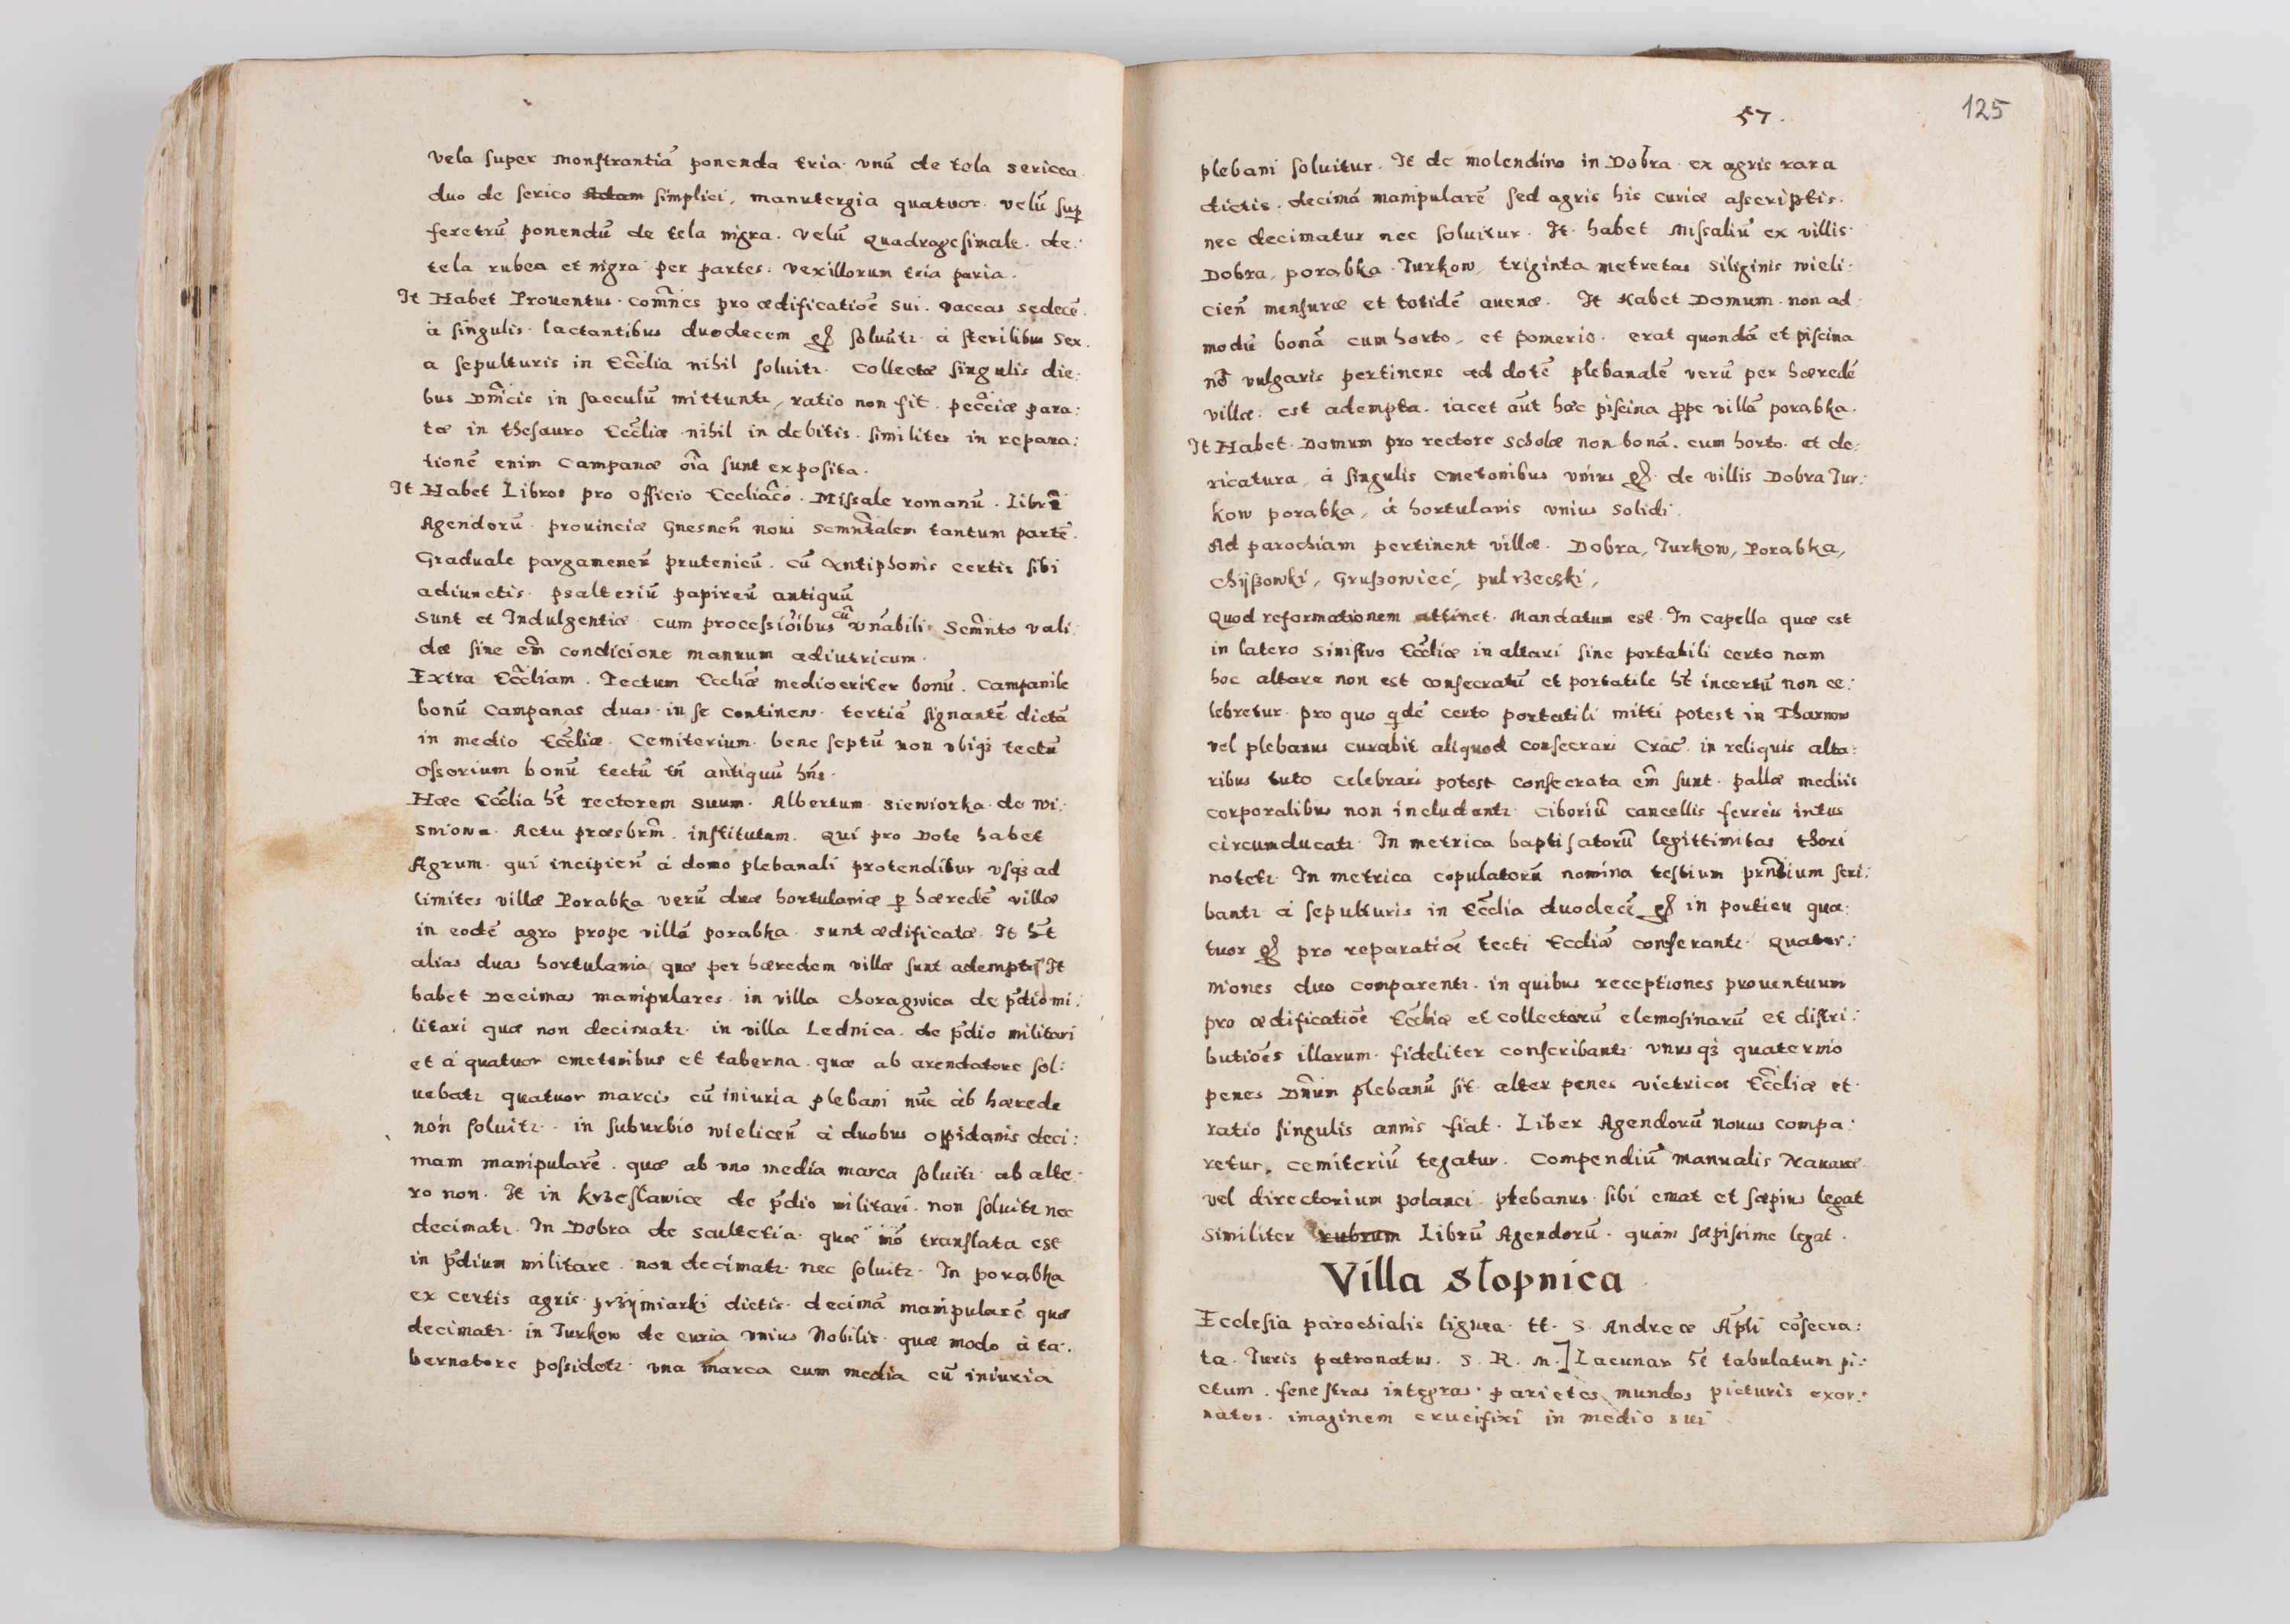 vela super Monstrantiā ponenda tria. vnū de tela sericea.
duo de serico simplici, manutergia quatuor. velū sup
feretrū ponendū de tela nigra. velū Quadragesimale. de:
tela rubea et nigra per partes. vexillorum tria paria.
It Habet Prouentus. com̄nes pro ædificatioē sui. vaccas sedecē.
à singulis. lactantibus duodecem gͬ soluūtr. à sterilibus sex.
a sepulturis in Eccl̄ia nihil soluitr. Collectæ singulis die:
bus Dn̄icis in saeculū mittuntr, ratio non fit. pecc̄iæ para:
tæ in thesauro Eccl̄iæ nihil in debitis. similiter in repara:
tionē enim Campanæ oīa sunt exposita.
It Habet Libros pro officio Eccl̄iaco. Missale romanū. Librū
Agendorū. prouinciæ Gnesneñ noui Semn̄talem tantum partē.
Graduale pargamenen̄ prutenicū. cū Antiphonis certis sibi
adiunctis. psalteriū papireū antiquū
Sunt et Indulgentiæ cum processiōibus cū vn̄abili Sem̄nto vali:
dæ sine em̄ condicione manuum adiutricum.
Extra Eccl̄iam. Tectum Eccl̄iæ mediocriter bonū. Campanile
bonū Campanas duas. in se continens. tertiā signantē dictā
in medio Eccl̄iæ. Cemiterium. bene septū non vbiqꝫ tectū
ossorium bonū tectū tn̄ antiquū hn̄s.
Hæc Eccl̄ia ht̄ rectorem suum. Albertum. siewiorka. de Wi:
sniowa. Actu præsbrm̄. institutum. Qui pro Dote habet
Agrum. qui incipien̄ à domo plebanali protenditur vsqꝫ ad
limites villæ Porabka. verū duæ hortulaniæ p hæredē villæ
in eodē agro prope villā porabka. sunt ædificatæ. It ht̄
alias duas hortulania quæ per hæredem villæ sunt ademptæ It
habet Decimas manipulares. in villa Choragwica de p̄dio mi:
litari quæ non decimatr. in villa Lednica. de p̄dio militari
et à quatuor cmetonibus et taberna. quæ ab arendatore sol:
uebatr quatuor marcis cū iniuria plebani nūc ab hærede
non soluitr. in suburbio wielicen̄ à duobus oppidanis deci:
mam manipularē. quæ ab vno media marca soluitr ab alte:
ro non. It in krzesławice de p̄dio militari. non soluitr nec
decimatr. In Dobra de scultetia. quæ translata est
in p̄dium militare. non decimatr. nec soluitr. In porabka
ex certis agris. przymiarki dictis. decimā manipularē quæ
decimatr. in Jurkow de curia vnius Nobilis. quæ modo à ta:
bernatore possidetr. vna marca cum media cū iniuria
57.
125
plebani soluitur. It de molendino in Dobra. ex agris rara
dictis. decimā manipularē sed agris his curiæ asscriptis.
nec decimatur nec soluitur. It. habet Missaliū ex villis.
Dobra, porabka. Jurkow, triginta metretas siliginis wieli:
cien̄ mensuræ et totidē auenæ. It Habet Domum. non ad:
modū bonā cum horto, et pomerio. erat quondā et piscina
vulgaris pertinens ad dotē plebanalē verū per hæredē
villæ. est adempta. iacet aūt hæc piscina ꝓpe villā porabka.
It Habet. Domum pro rectore scholæ non bonā. cum horto. et de:
ricatura, à singulis cmetonibus vnius gͬ. de villis Dobra Jur:
kow porabka, à hortulanis vnius solidi.
Ad parochiam pertinent villæ. Dobra, Jurkow, Porabka,
Chyszowki, Gruszowiec, pulrzeczki,
Quod reformationem attinet. Mandatum est. In Capella quæ est
in latero sinistro Eccl̄iæ in altari sine portatili certo nam
hoc altare non est consecratū et portatile ht̄ incertū non ce:
lebretur. pro quo qdē certo portatili mitti potest in Tharnow
vel plebanus curabit aliquod consecrari Crac̄. in reliquis alta:
ribus tuto celebrari potest consecrata em̄ sunt. pallæ mediis
corporalibus non includantr. Ciboriū cancellis ferreis intus
circumducatr. In metrica baptisatorū legittimitas thori
notetr. In metrica copulatorū nomina testium prn̄tium scri:
bantr. à sepulturis in Eccl̄ia duodecē gͬ in porticu qua:
tuor gͬ pro reparatiōe tecti Eccl̄iæ conferantr. Quater:
niones duo comparentr. in quibus receptiones prouentuum
pro ædificatiōe Eccl̄iæ et collectarū elemosinarū et distri:
butiōes illarum. fideliter conscribantr. vnus qꝫ quaternio
penes Dn̄um plebanū sit. alter penes vietricos Eccl̄iæ et.
ratio singulis annis fiat. Liber Agendorū nouus compa:
retur. cemiteriū tegatur. Compendiū manualis Nauaræ.
vel directorium polanci. plebanus. sibi emat et sæpius legat
similiter rubrum Librū Agendorū. quàm sæpissime legat.
Villa Słopnica
Ecclesia parochialis lignea. tt. S. Andreæ Apl̄i cōsecra:
ta. Juris patronatus. S. R. M.] Lacunar ht̄ tabulatum pi:
ctum. fenestras integras. parietes mundos picturis exor:
natos. imaginem crucifixi in medio sui